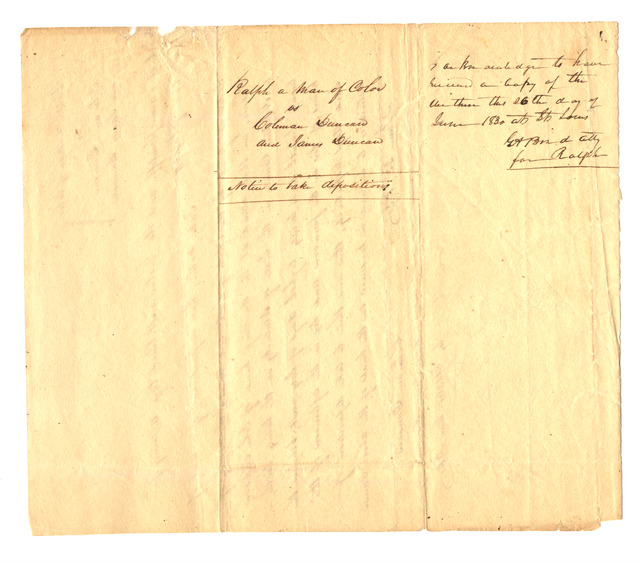 Ralph a Man of Color
vs
Coleman Duncan
and James Duncan
Notice to take depositions.
I acknowledge to have
received a Copy of the
within this 26th day of
June 1830 at St Louis
Bird atty
for Ralph